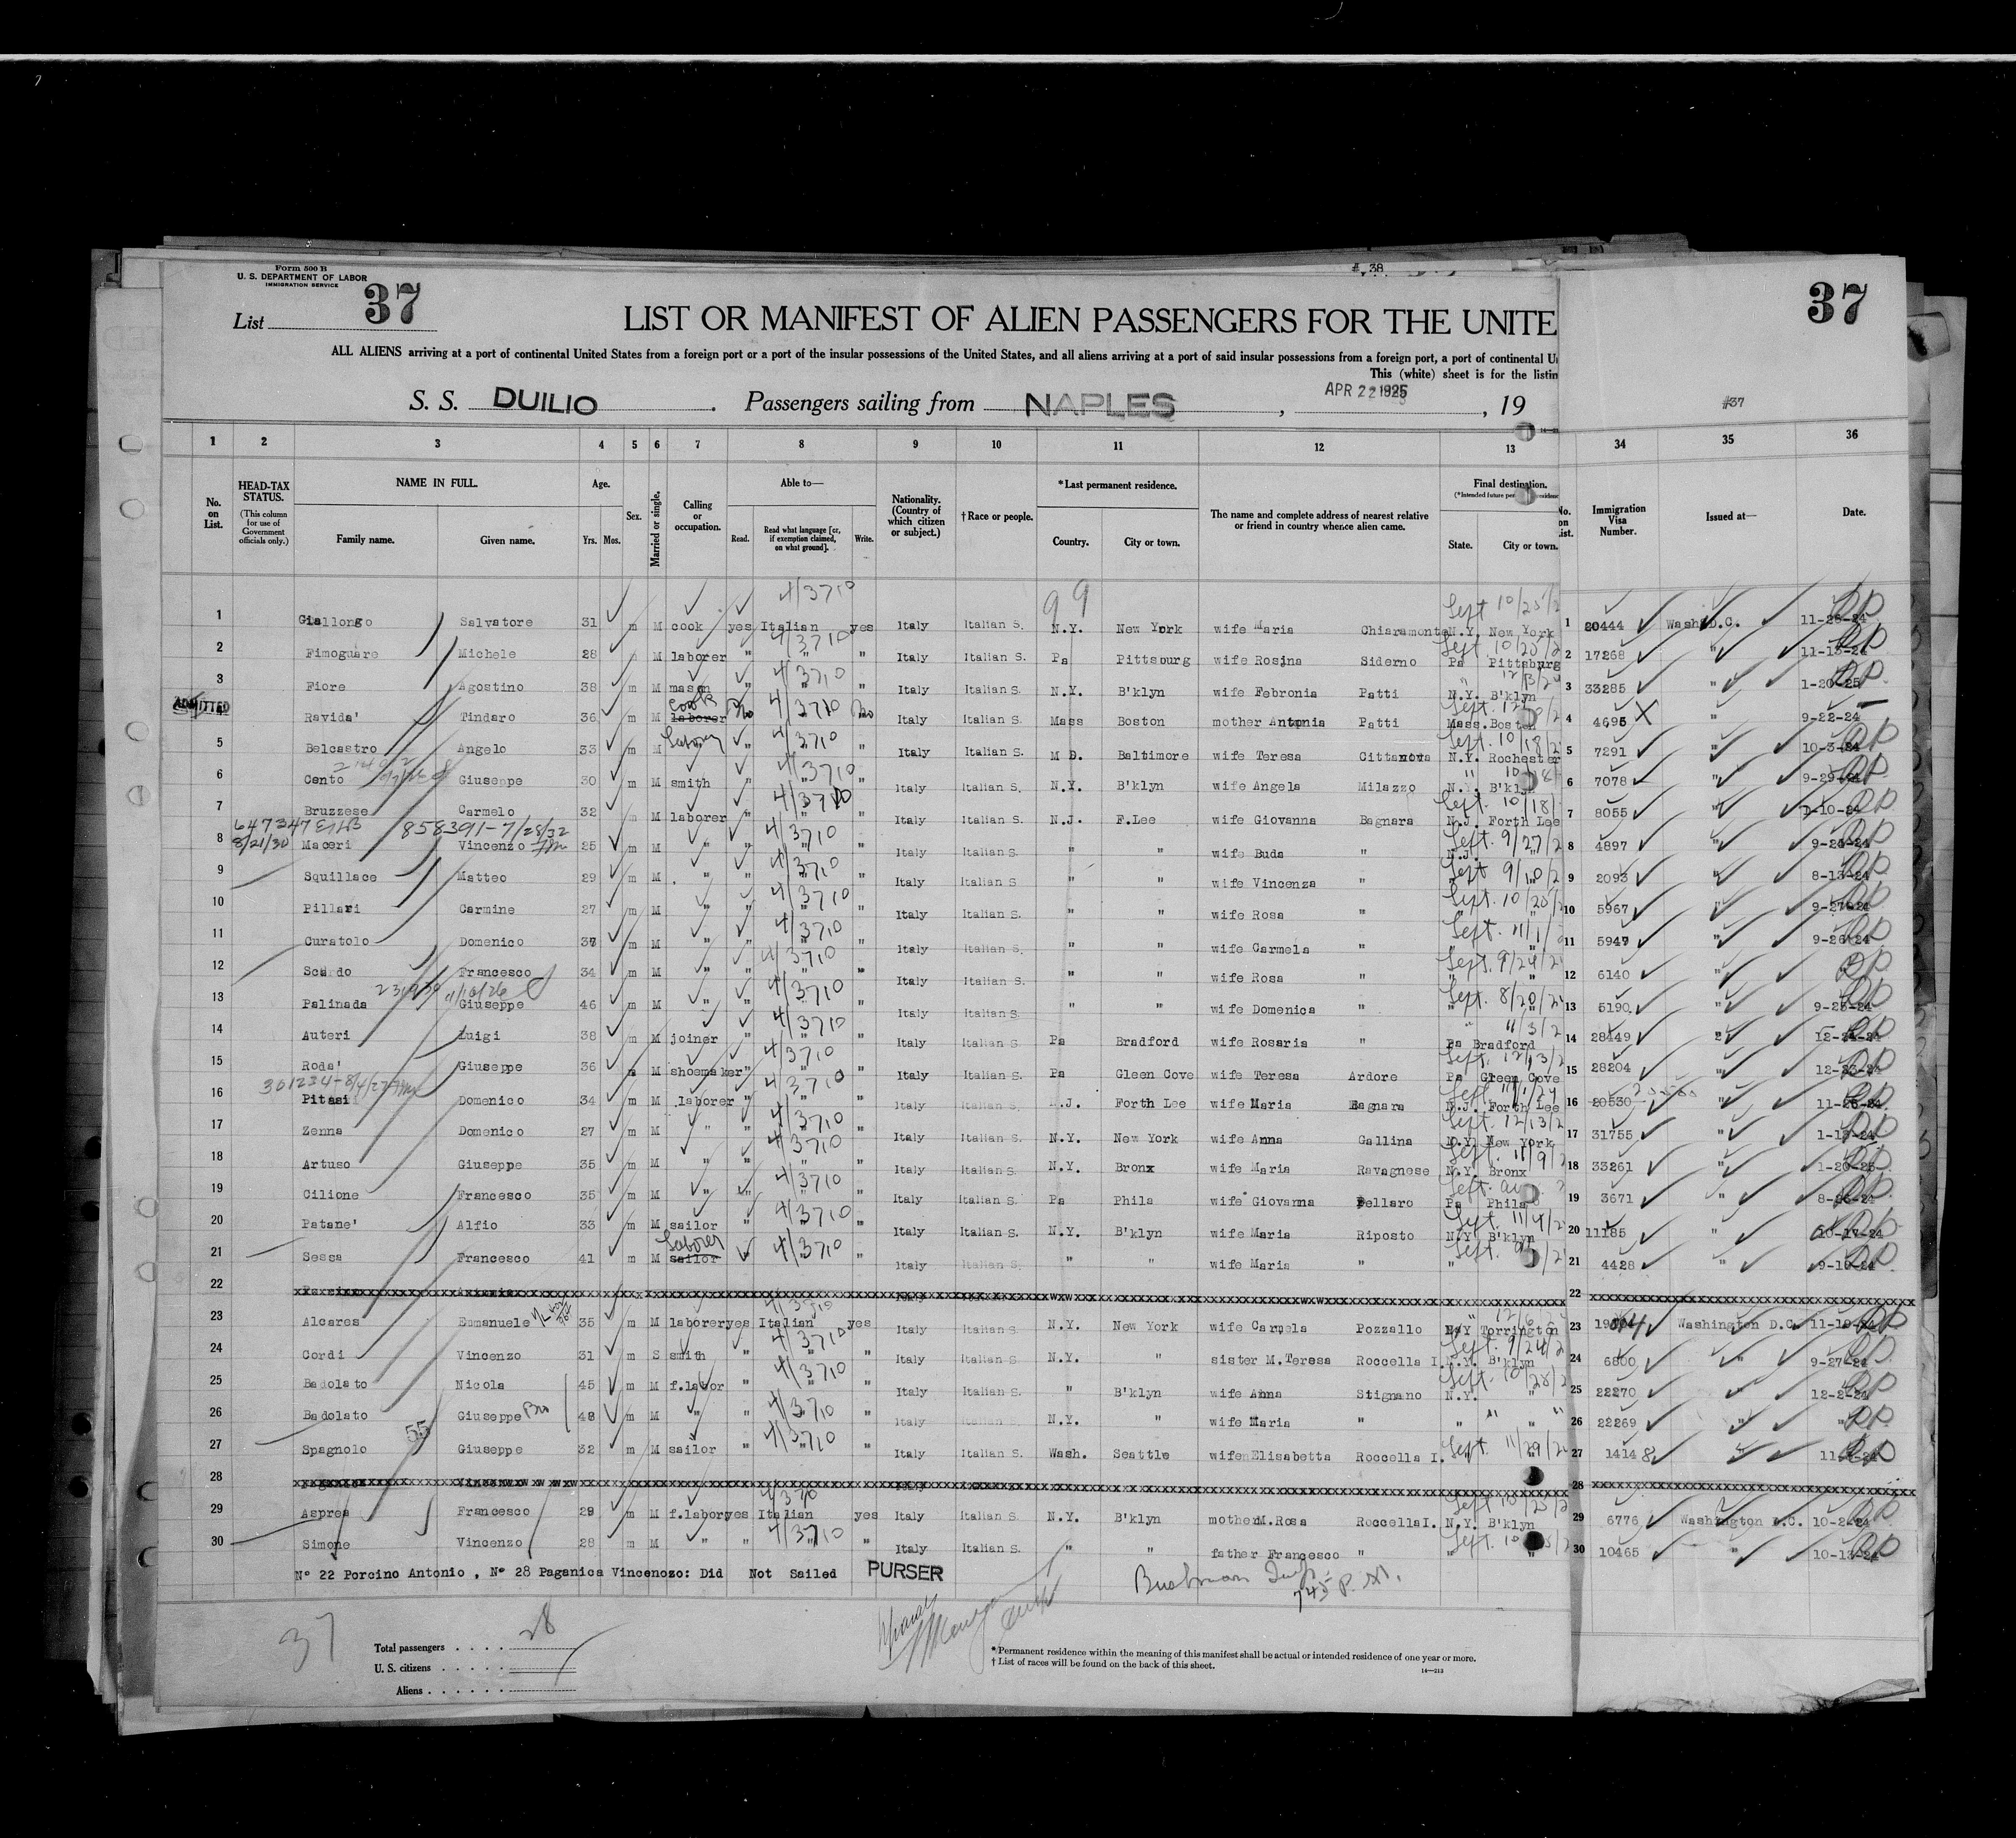 # 38
Form 500 B
U. S. DEPARTMENT OF LABOR
IMMIGRATION SERVICE
List 37
37
LIST OR MANIFEST OF ALIEN PASSENGERS FOR THE UNITE
ALL ALIENS arriving at a port of continental United States from a foreign port or a port of the insular possessions of the United States, and all aliens arriving at a port of said insular possessions from a foreign port, a port of continental U
This (white) sheet is for the listin
S. S. DUILIO. Passengers sailing from NAPLES, APR 22 1925, 19
#37
1 2 3 4 5 6 7 8 9 10 11 12 13 34 35 36
No. on List.
HEAD-TAX STATUS.
(This column for use of Government officials only.)
NAME IN FULL.
Family name. Given name.
Age.
Yrs. Mos.
Sex.
Married or single.
Calling or occupation.
Able to—
Read. Read what language [or, if exemption claimed, on what ground]. Write.
Nationality. (Country of which citizen or subject.)
†Race or people.
*Last permanent residence.
Country. City or town.
The name and complete address of nearest relative or friend in country whence alien came.
Final destination.
State. City or town.
Immigration Visa Number.
Issued at—
Date.
99
1 Giallongo Salvatore 31 m M cook yes Italian yes Italy Italian S. N.Y. New York wife Maria Chiaramonte N.Y. New York 1 20444 Wash. D.C. 11-28-24
2 Fimognare Michele 28 M laborer " " " Italy Italian S. Pa Pittsburg wife Rosina Siderno Pa Pittsburg 2 17268 " 11-13-24
3 Fiore Agostino 38 m M mason " " " Italy Italian S. N.Y. B'klyn wife Febronia Patti N.Y. B'klyn 3 33285 " 1-20-25
ADMITTED
4 Ravida' Tindaro 36 m M laborer cook No " No Italy Italian S. Mass Boston mother Antonia Patti Mass. Boston 4 4695 " 9-22-24
5 Belcastro Angelo 33 m M " " " " Italy Italian S. M D. Baltimore wife Teresa Cittanova N.Y. Rochester 5 7291 " 10-3-24
6 Cento Giuseppe 30 m M smith " " " Italy Italian S. N.Y. B'klyn wife Angela Milazzo N.Y. B'klyn 6 7078 " 9-29-24
7 Bruzzese Carmelo 32 m M laborer " " " Italy Italian S. N.J. F.Lee wife Giovanna Bagnara N.J. Forth Lee 7 8055 " 1-10-24
8/21/30 858391-7/28/32
8 Maceri Vincenzo 25 m M " " " " Italy Italian S. " " wife Buda " N.J. " 8 4897 " 9-24-24
9 Squillace Matteo 29 m M " " " " Italy Italian S " " wife Vincenza " " " 9 2093 " 8-13-24
10 Pillari Carmine 27 m M " " " " Italy Italian S. " " wife Rosa " " " 10 5967 " 9-27-24
11 Curatolo Domenico 37 m M " " " " Italy Italian S. " " wife Carmela " " " 11 5947 " 9-26-24
12 Francesco 34 m M " " " " Italy Italian S. " " wife Rosa " " " 12 6140 "
13 Palinada Giuseppe 46 m M " " " " Italy Italian S. " " wife Domenica " " " 13 5190 " 9-25-24
14 Auteri Luigi 38 m M joiner " " " Italy Italian S. Pa Bradford wife Rosaria " Pa Bradford 14 28449 " 12-24-24
15 Roda' Giuseppe 36 m M shoemaker " " " Italy Italian S. Pa Gleen Cove wife Teresa Ardore Pa Gleen Cove 15 28204 " 12-23-24
16 Pitasi Domenico 34 m M laborer " " " Italy Italian S. N.J. Forth Lee wife Maria Bagnara N.J. Forth Lee 16 20530 " 11-28-24
17 Zenna Domenico 27 m M " " " " Italy Italian S. N.Y. New York wife Anna Gallina N.Y. New York 17 31755 " 1-13-24
18 Artuso Giuseppe 35 m M " " " " Italy Italian S. N.Y. Bronx wife Maria Ravagnese N.Y. Bronx 18 33261 " 1-20-25
19 Cilione Francesco 35 m M " " " " Italy Italian S. Pa Phila wife Giovanna Pellaro Pa Phila 19 3671 " 8-26-24
20 Patane' Alfio 33 m M sailor " " " Italy Italian S. N.Y. B'klyn wife Maria Riposto N.Y. B'klyn 20 11185 " 10-17-24
21 Sessa Francesco 41 m M sailor Laborer " " Italy Italian S. " " wife Maria " " 21 4428 " 9-19-24
22 22
23 Alcares Emmanuele 35 m M laborer yes Italian yes Italy Italian S. N.Y. New York wife Carmela Pozzallo N.Y Torrington 23 Washington D.C. 11-19-24
24 Cordi Vincenzo 31 m S smith " " " Italy Italian S. N.Y. " sister M.Teresa Roccella I. N.Y. B'klyn 24 6800 " 9-27-24
25 Badolato Nicola 45 m M f.labor " " " Italy Italian S. " B'klyn wife Anna Stignano N.Y. " 25 22270 " 12-2-24
26 Badolato Giuseppe Bro 48 m M " " " " Italy Italian S. N.Y. " wife Maria " " " 26 22269 " "
55
27 Spagnolo Giuseppe 32 m M sailor " " " Italy Italian S. Wash. Seattle wife Elisabetta Roccella I. " " 27 14148 "
28 28
29 Asprea Francesco 29 m M f.labor yes Italian yes Italy Italian S. N.Y. B'klyn mother M.Rosa Roccella I. N.Y. B'klyn 29 6776 Washington D.C. 10-2-24
30 Simone Vincenzo 28 m M " " " " Italy Italian S. " " father Francesco " " " 30 10465 " 10-13-24
N° 22 Porcino Antonio , N° 28 Paganica Vincenozo: Did Not Sailed PURSER
745 P. St.
37
Total passengers . . . . 28
U. S. citizens . . . . .
Aliens . . . . . .
*Permanent residence within the meaning of this manifest shall be actual or intended residence of one year or more.
† List of races will be found on the back of this sheet.
14—213